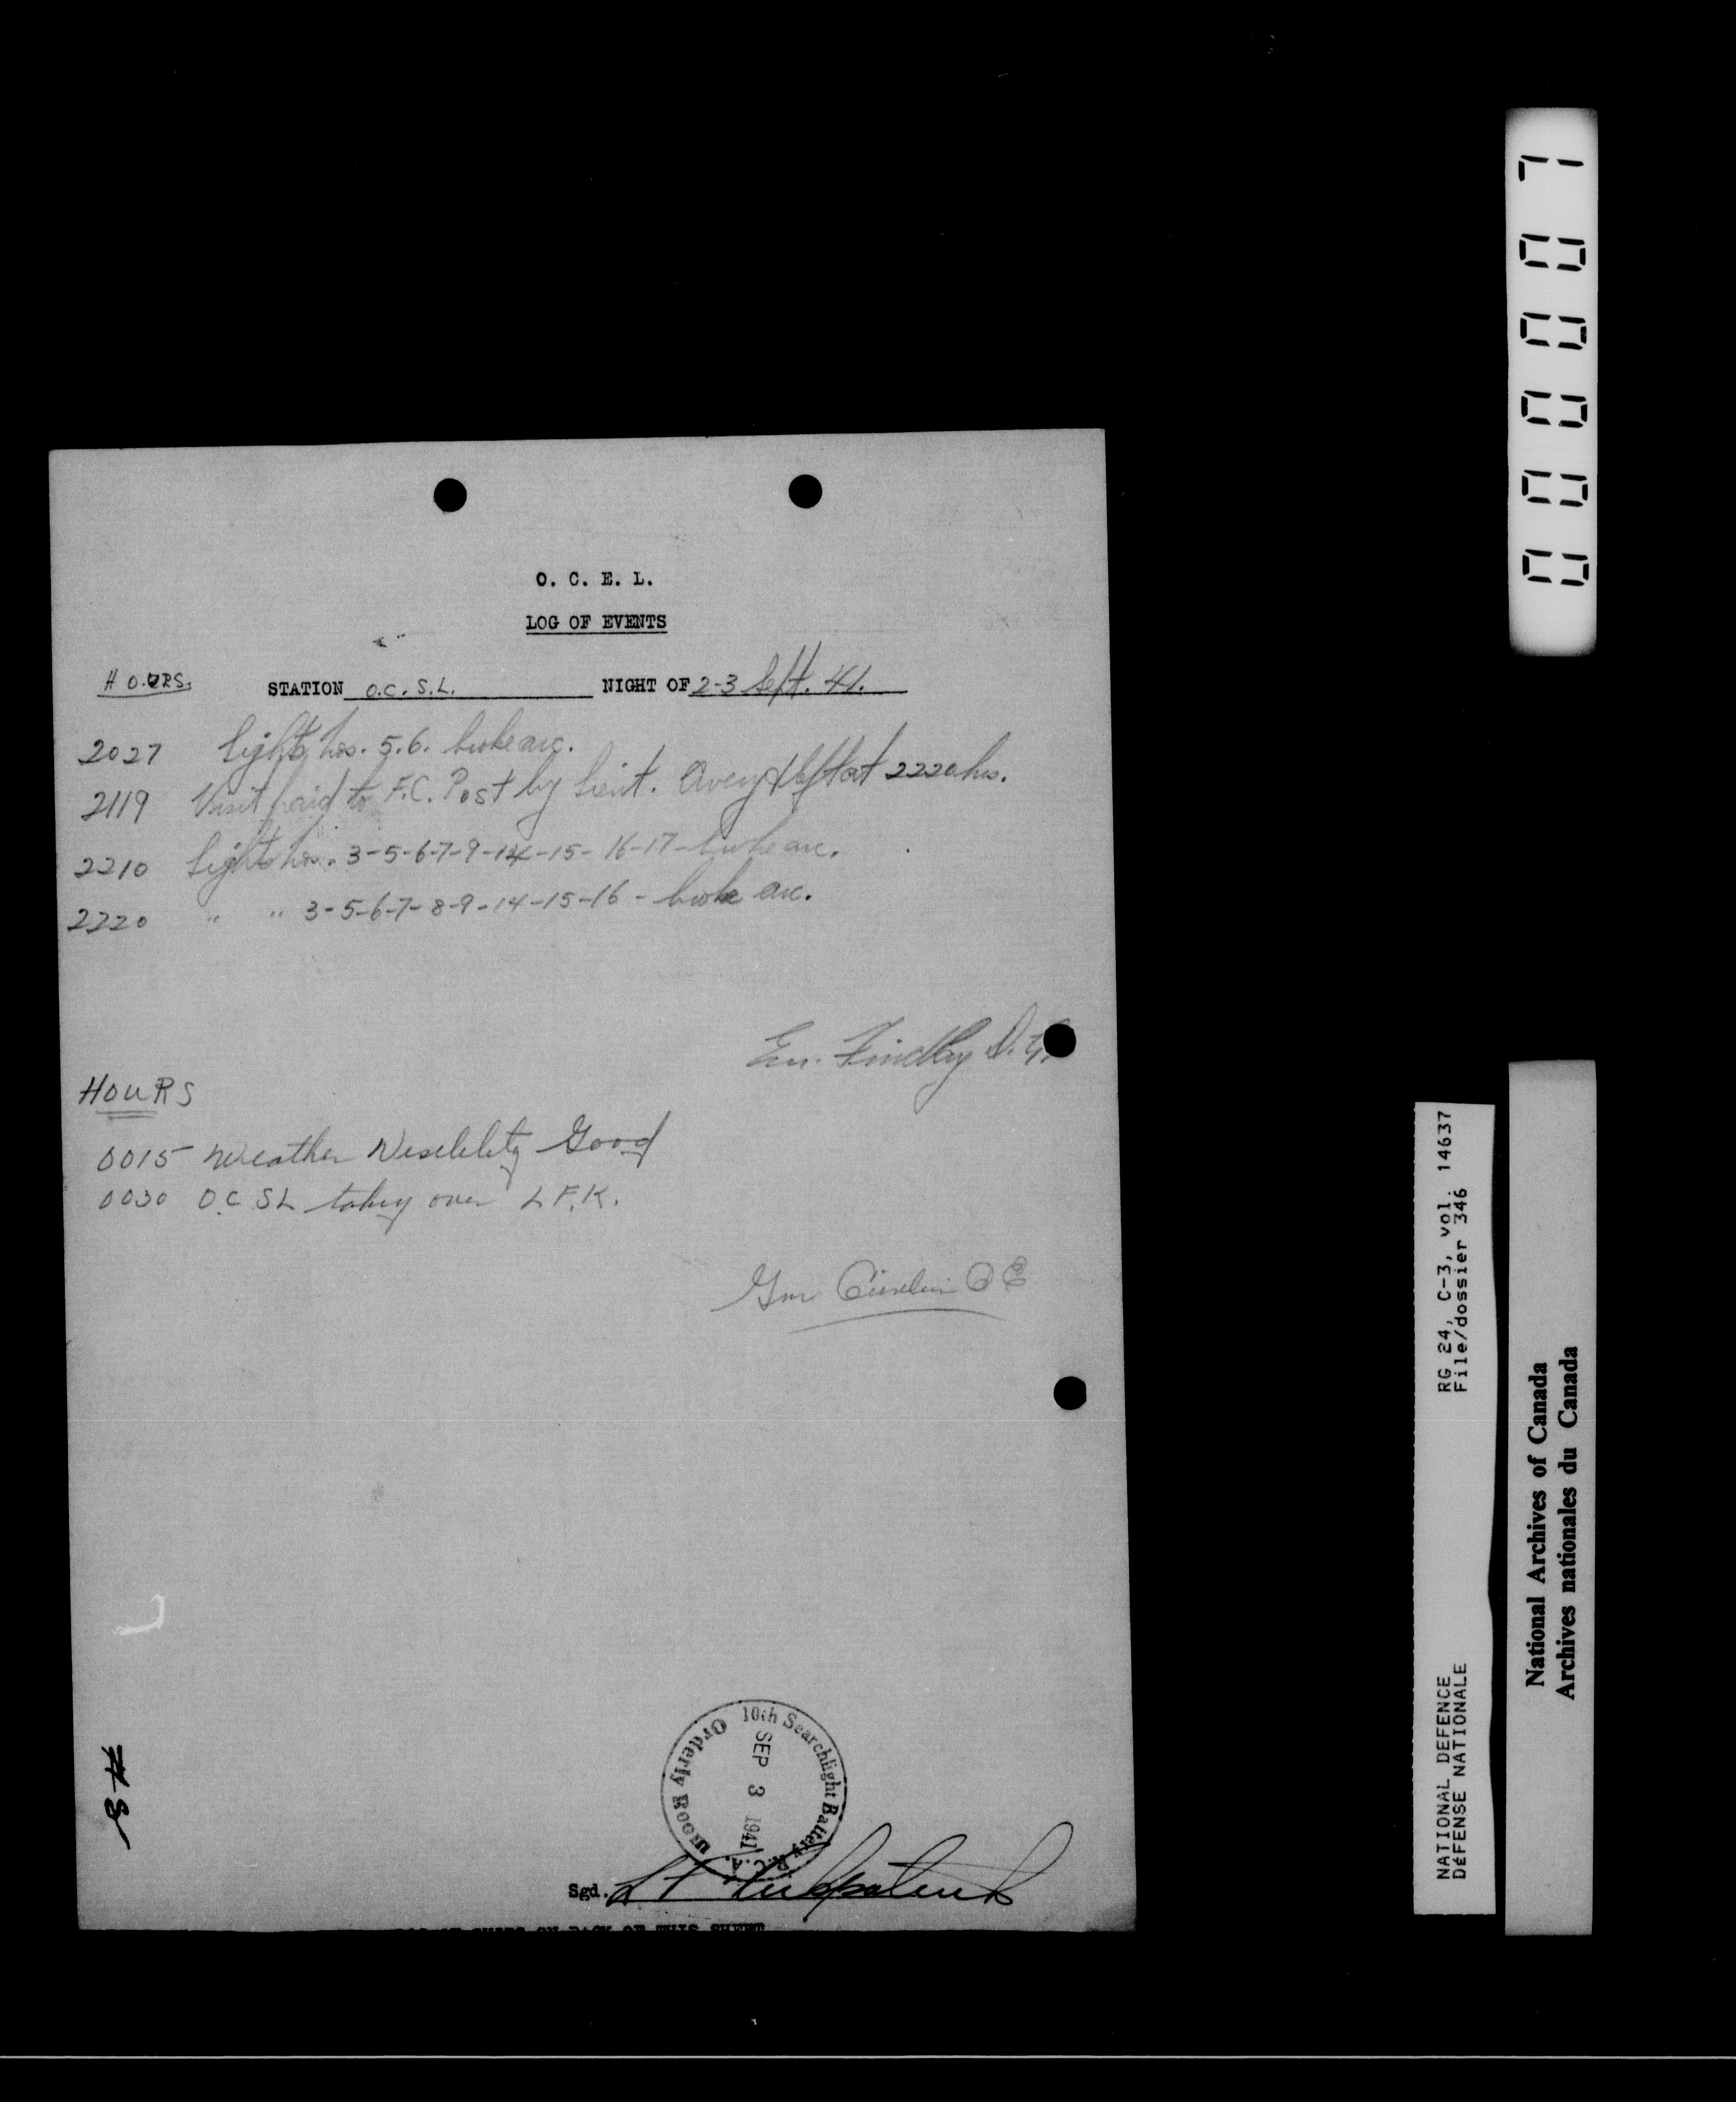 O. C. E. L.
LOG OF EVENTS
HOURS. STATION O.C. S.L. NIGHT OF 2-3 Sept. 41.
2027 Lights Nos. 5.6. broke arc.
2119 Visit paid to F.C. Post by Lieut. Avery & left at 2220 hrs.
2210 Lights Nos. 3-5-6-7-9-14-15-16-17- broke arc.
2220 " " 3-5-6-7-8-9-14-15-16 - broke arc.
Findlay
HOURS
0015 Weather Viseblity Good
0030 O.C SL taking over L F.K.
Gnr
10th Searchlight Battery R.C.A.
Orderly Room
SEP 3 1941
Sgd. L F Kirkpatrick
ON BACK OF THIS SHEET
000007
RG 24, C-3, vol. 14637
File/dossier 346
NATIONAL DEFENCE
DéFENSE NATIONALE
National Archives of Canada
Archives nationales du Canada